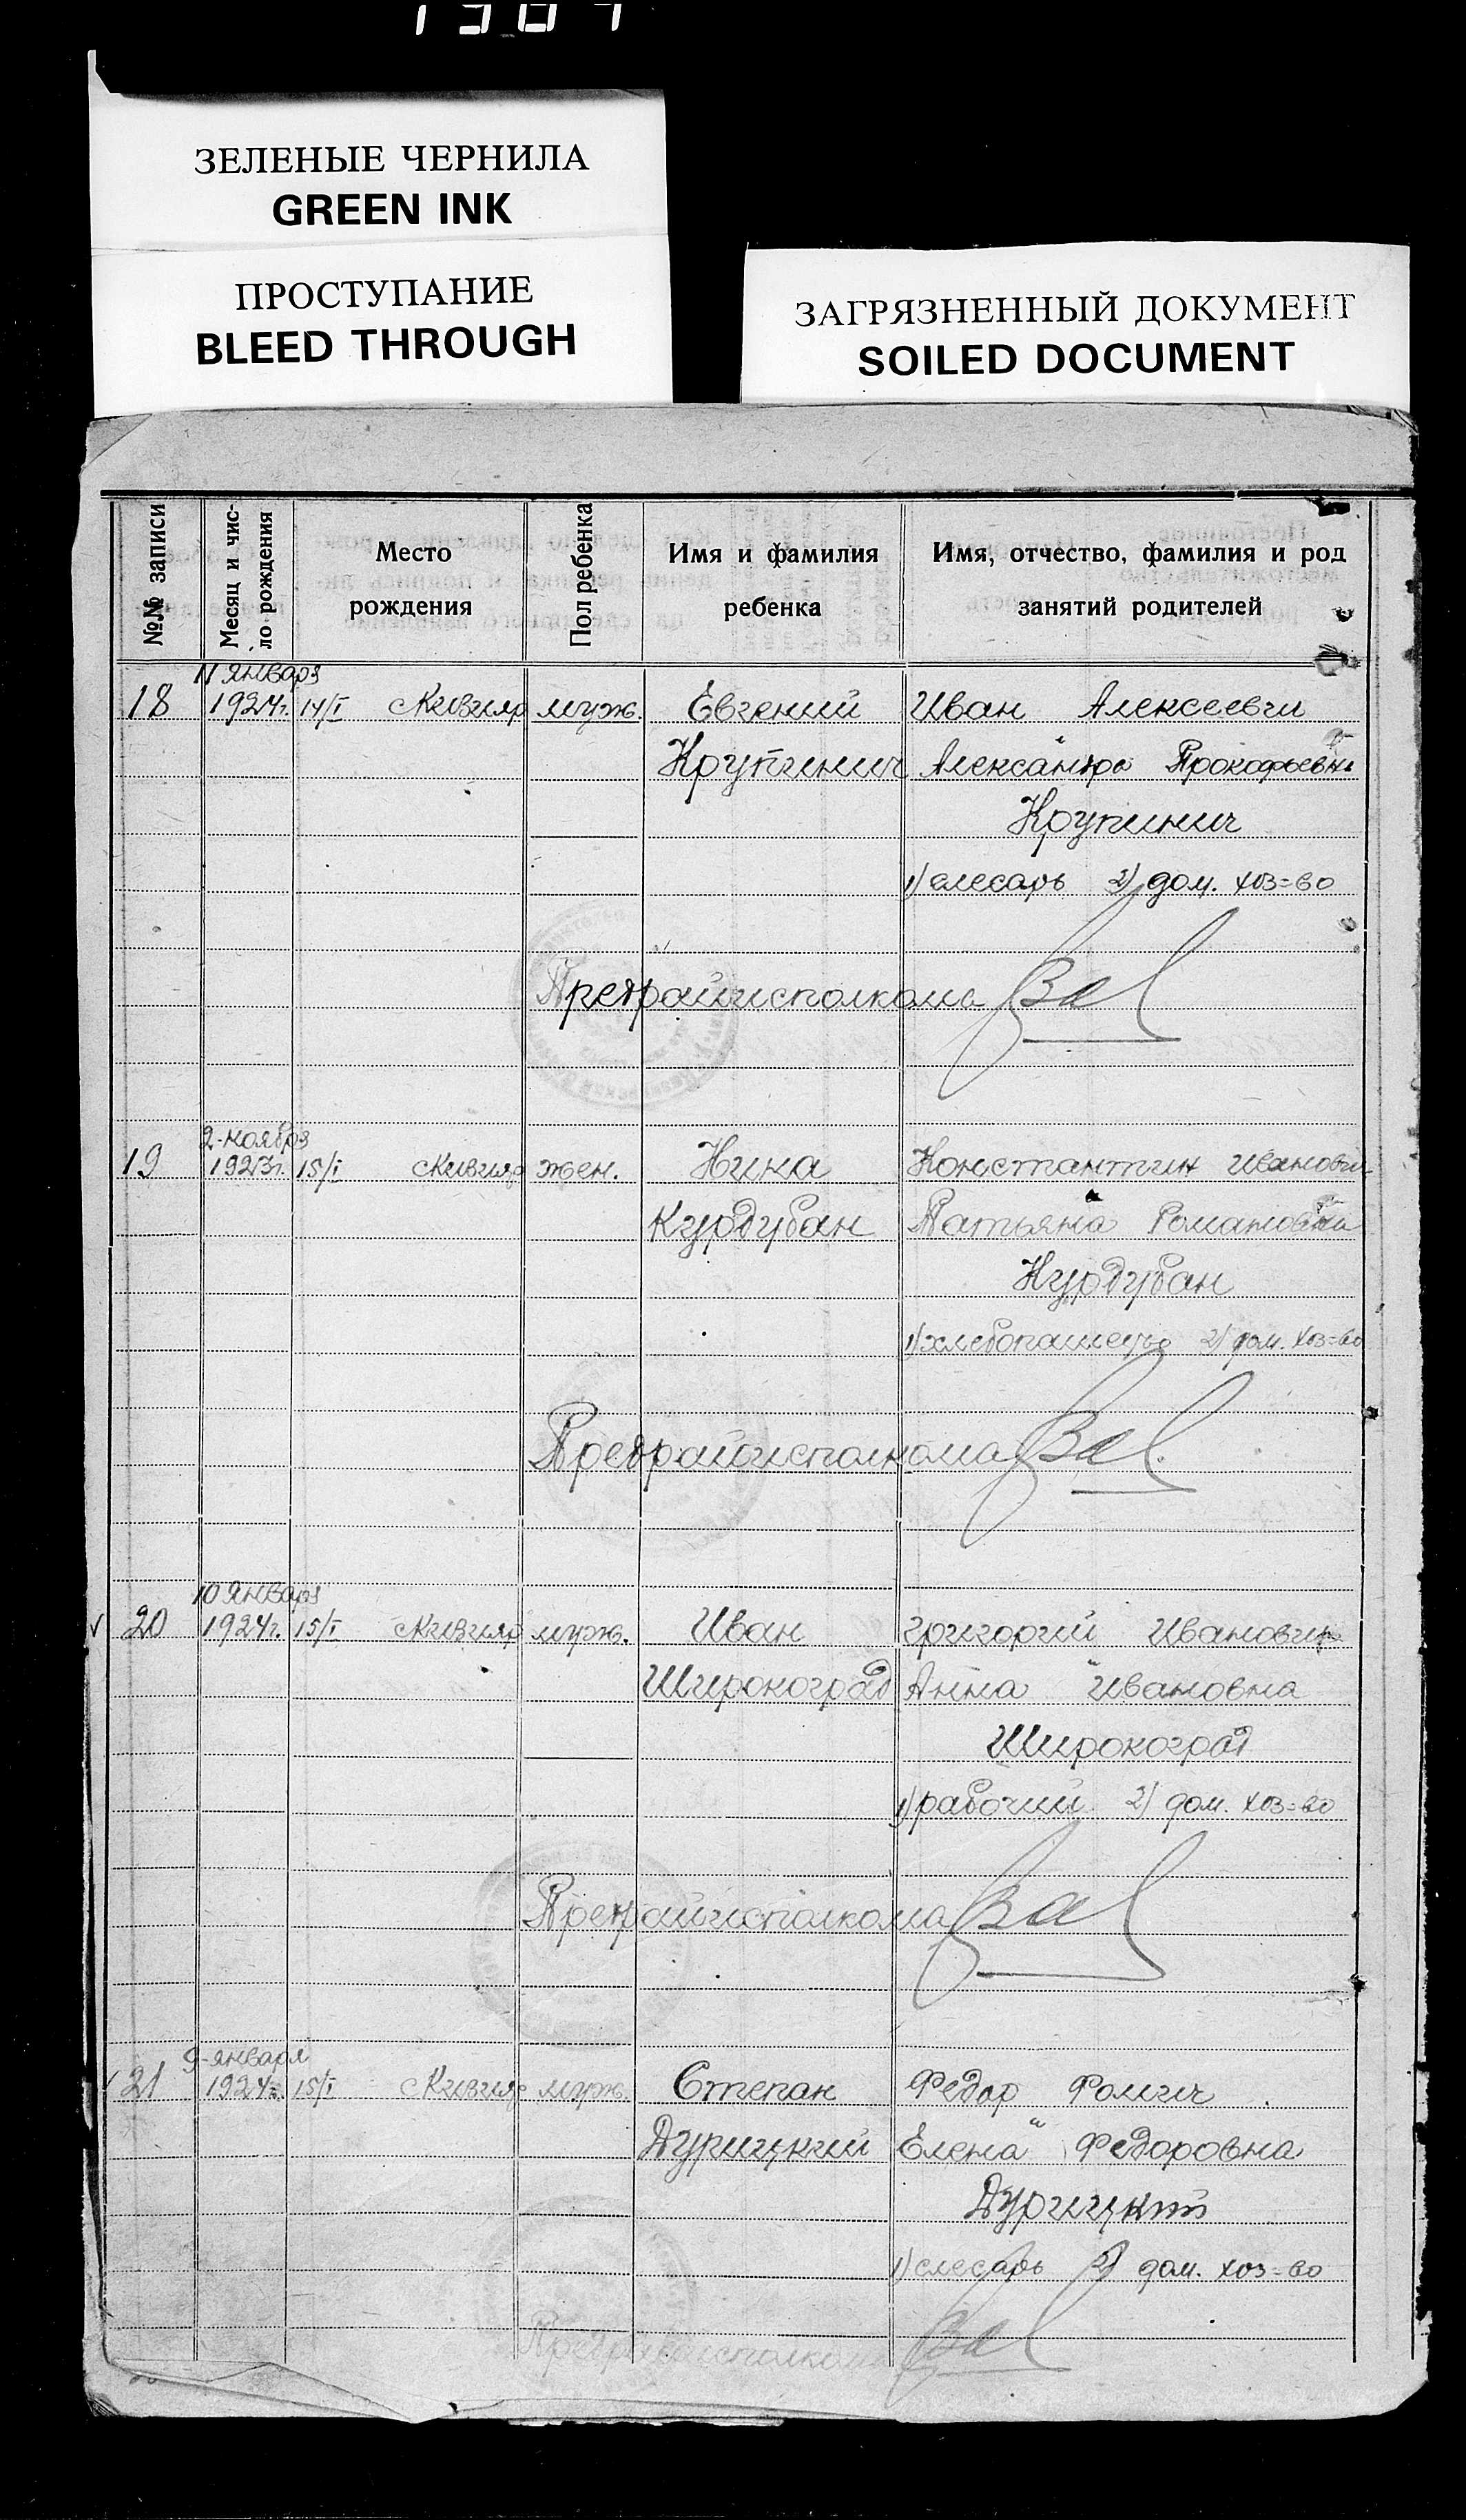 1987
ЗЕЛЕНЫЕ ЧЕРНИЛА
GREEN INK
ПРОСТУПАНИЕ
BLEED THROUGH
ЗАГРЯЗНЕННЫЙ ДОКУМЕНТ
SOILED DOCUMENT
№№ записи
Месяц и чис-
ло рождения
Место
рождения
Пол ребенка
Имя и фамилия
ребенка
Имя, отчество, фамилия и род
занятий родителей
11 января
18 1924г. 14/I муж. Евгений Иван Алексеевич
Крупинич Александра Прокофьевна
Крупинич
1) слесарь 2) дом. хоз=во
Предрайисполкома
2-ноября
19 1923г. 15/I жен. Нина Константин Иванович
Курдубан Татьяна Романовна
Курдубан
1) хлебопашец 2) дом. хоз=во
Предрайисполкома
10 января
20 1924г. 15/I муж. Иван Григорий Иванович
Широкоград Анна Ивановна
Широкоград
1) рабочий 2) дом. хоз=во
Предрайисполкома
9-января
21 1924г. 15/I муж. Степан Федор Фомич
Дурицкий Елена Федоровна
Дурицкий
1) слесарь 2) дом. хоз=во
Предрайисполкома